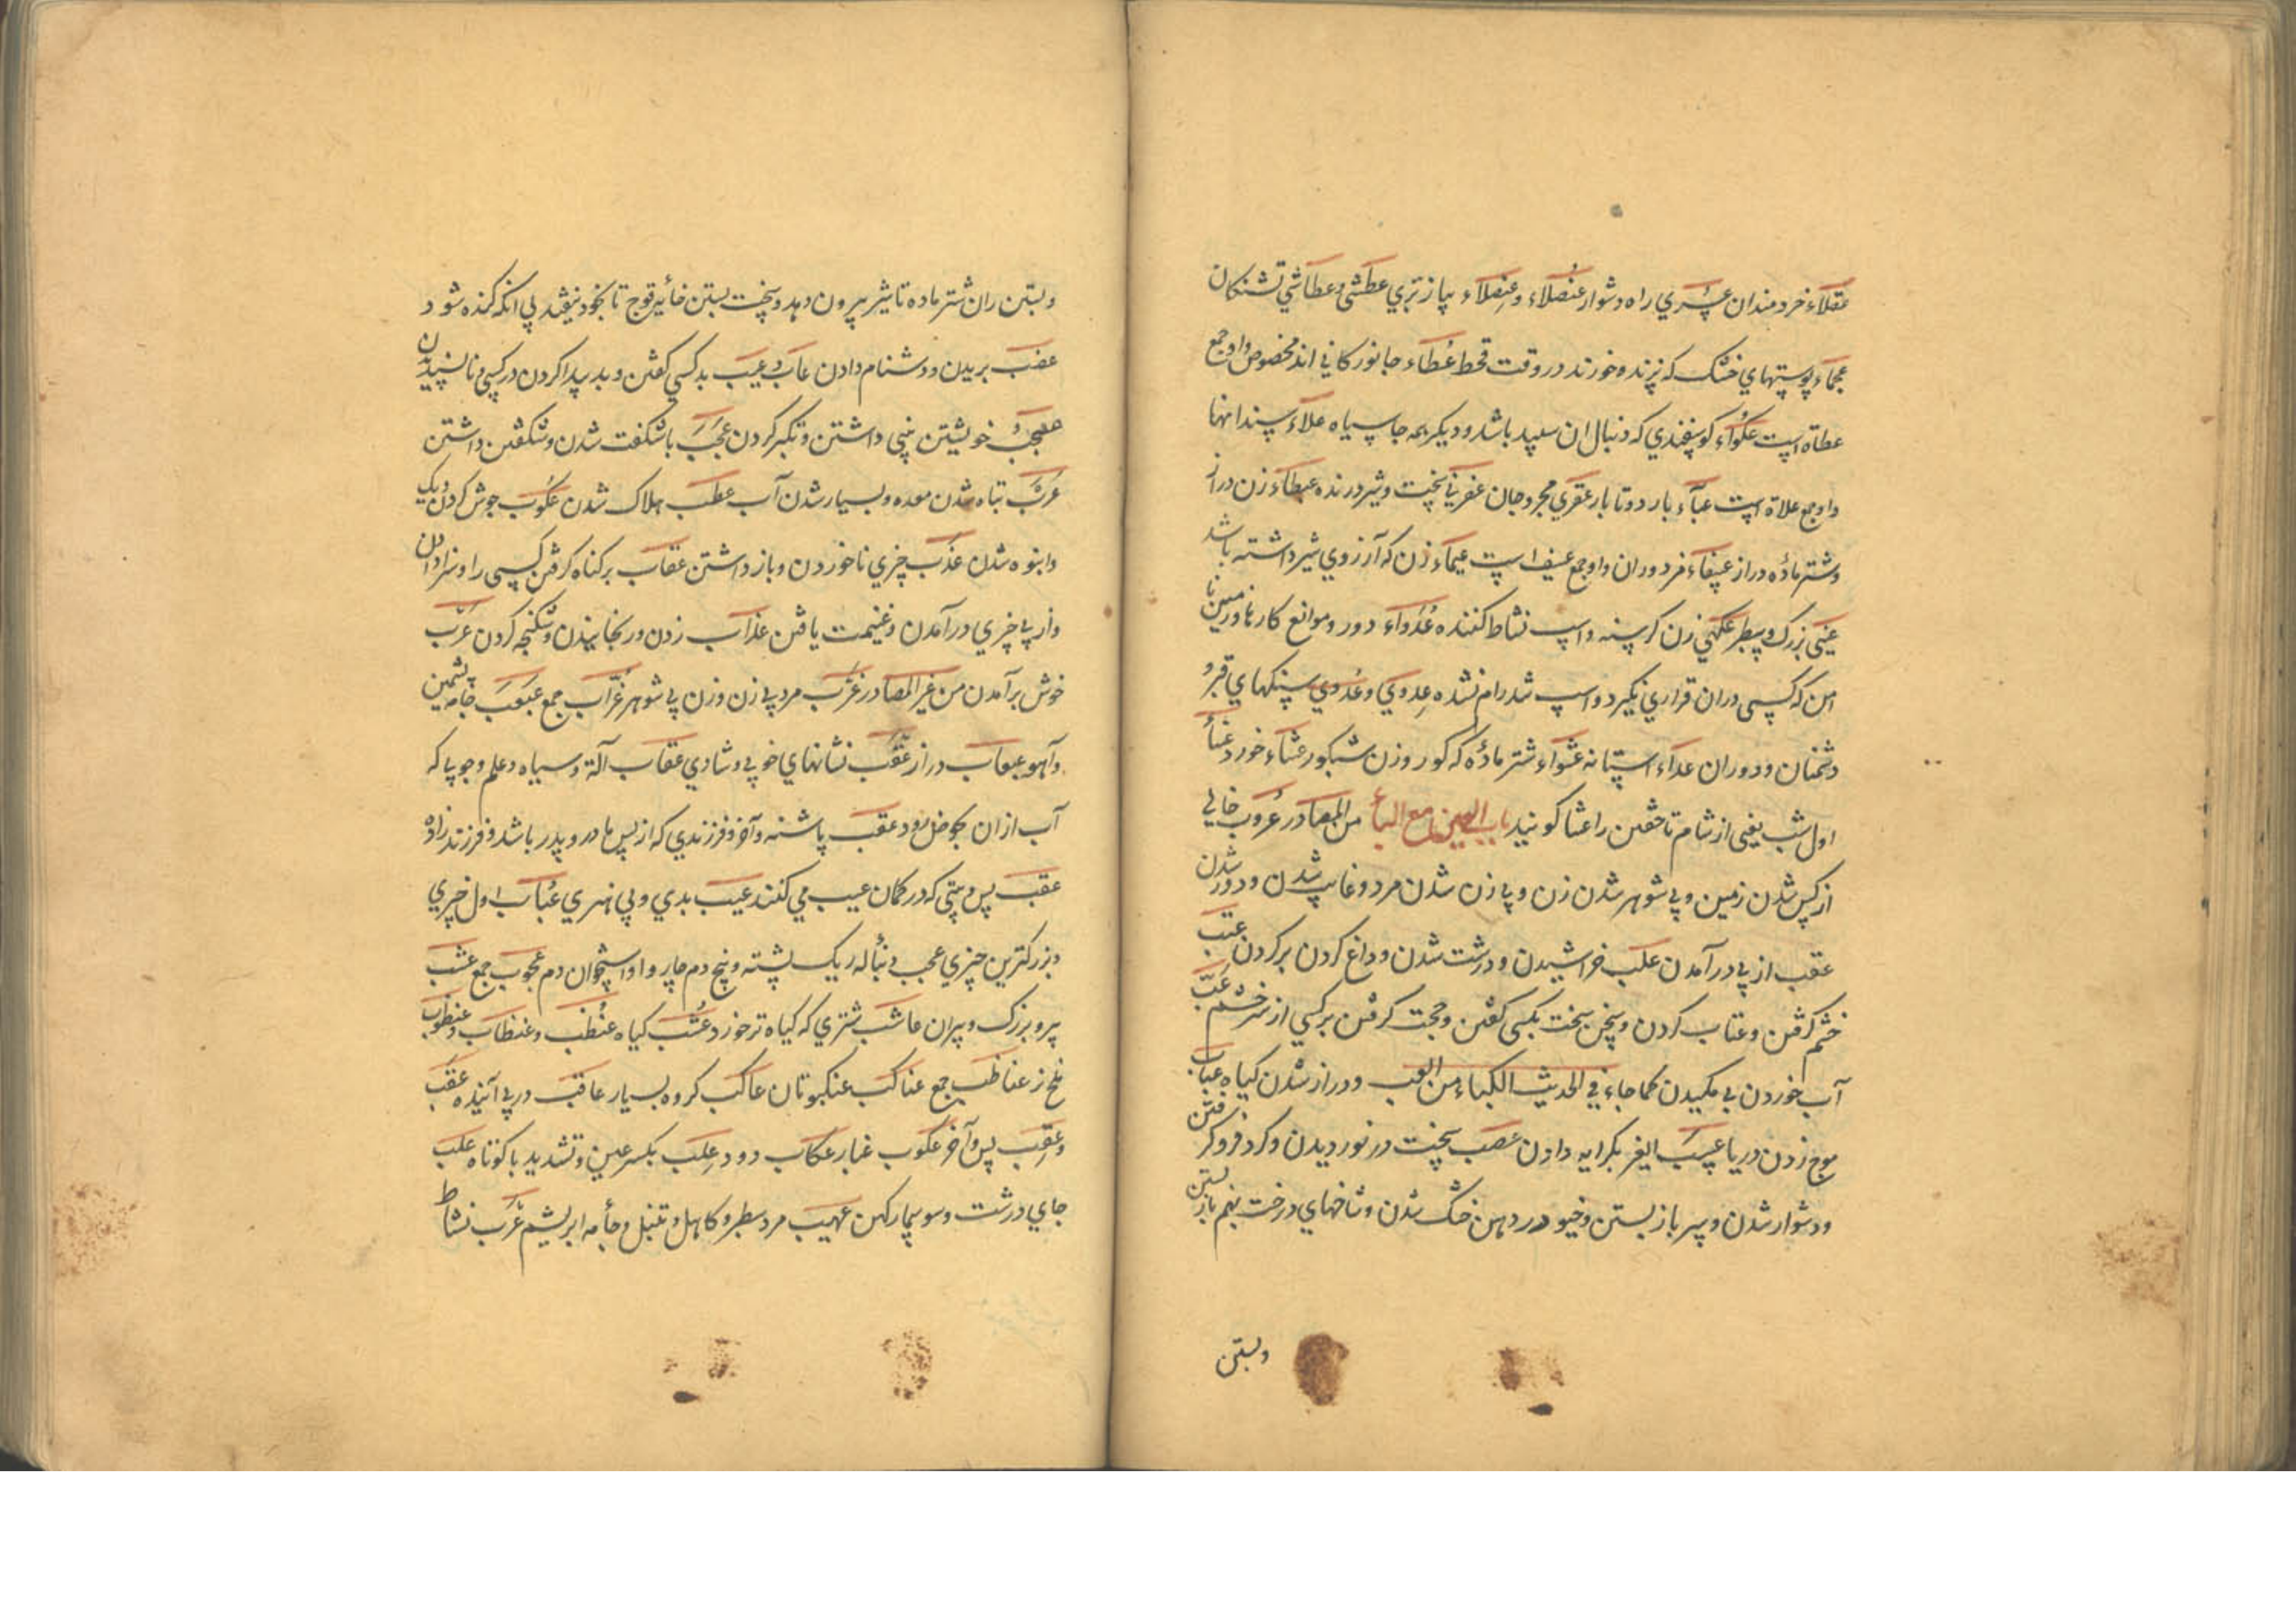 عقلاء خردمندان عسری راه دشوار عنصلاء و عنصلاء پیاز بری عطشی و عطاشی تشنکان
عجماء پوستهای خشک که بزنده خورند در وقت قحط عظاء جانورکانی اند مخصوص واو جمع
عظاة است عکواء کوسفندی که دنبال ان سپید باشد و دیکر همه جا سیاه علاء سندانها
واو جمع علاة است عباء بار دوتا بار عقری مجروحان عفرنی سخت و شیر درنده عیطاء زن دراز
و شتر ماده دراز عیفاء مرد دوران واو جمع عیف است عیماء زن که آرزوی شیر داشته باشد
عنی بزرک و سطبر علهی زن کرسنه و اسپ نشاط کننده عدواء دور و موانع کارها و زمین نا
امن که کسی دران قراری نکیرد و اسپ شد رام نشده عدوی و عدوی سنکهای قبر و
دشمنان و دوران عداء استانه عشواء شتر ماده که کور و زن شبکور عشاء خورد غناء
اول شب یعنی از شام تا خفتن را عشا کویند باب العین مع الباء من المصادر عزوب خالی
از کس شدن زمین و بی شوهر شدن زن و بی زن شدن مرد و غایب شدن و دور شدن
عقب از پی در آمدن علب خراشیدن و درشت شدن و داغ کردن بر کردن عتب
خشم کرفتن و عتاب کردن و سخن سخت بکسی کفتن و حجت کرفتن بر کسی از سر خشم عب
آب خوردن بی مکیدن کما جاء فی الحدیث الکباء من العب و دراز شدن کیاه عباب
موج زدن دریا عسب الیغر بکرایه دادن عصب سخت در نوردیدن و کرد فرو کرفتن
و دشوار شدن و سر باز بستن و خیو در دهن خشک شدن و شاخهای درخت بهم باز بستن
وبستن
وبستن ران شتر ماده تا شیر بیرون دهد و سخت بستن خائیه قوچ تا بخود بیفتد بی انکه کنده شود
عضب بریدن و دشنام دادن عاب و عیب بد کسی کفتن و بد پیدا کردن در کسی و ناپسندیدن
عجب خویشتن بینی داشتن و تکبر کردن عجب باشکفت شدن و شکفتن داشتن
عرب تباه شدن معده و بسیار شدن آب عطب هلاک شدن عکوب جوش کردن دیک
و انبوه شدن عذب چیزی ناخوردن و باز داشتن عقاب بر کناه کرفتن کسی را و سزا دادن
و از پی چیزی در آمدن و غنیمت یافتن عذاب زدن و رنجانیدن و شکنجه کردن عرب
خوش بر آمدن من غیر المصادر عزب مرد بی زن و زن بی شوهر عزاب جمع عبعب جامه پشمین
و آهو عبعاب دراز عقب نشانهای خوبی و شادی عقاب آلة و سیاه و علم و جوپا که
آب ازان بحوض رود عقب پاشنه و آخر و فرزندی که از پس مادر و پدر باشد و فرزند زاده
عقب پس و پتی که در کمان عیب می کنند عیب بدی و بی هنری عباب اول چیزی
و بزرکترین چیزی عجب دنباله ریک پشته و بیخ دم چاروا و استخوان دم عجوب جمع عشب
پیر و بزرک و پیران عاشب شتری که کیاه تر خورد عشب کیاه عنظب و عنظاب و عنظوب
ملخ نر عناظب جمع عناکب عنکبوتان عاکب کروه بسیار عاقب در پی آینده عقب
و عقب پس و آخر عکوب غبار عکاب دود علب بکسر عین و تشدید با کوتاه علب
جای درشت و سوسمار کهن عهیب مرد سطبر و کاهل و تنبل و جامه ابریشم عرب نشاط